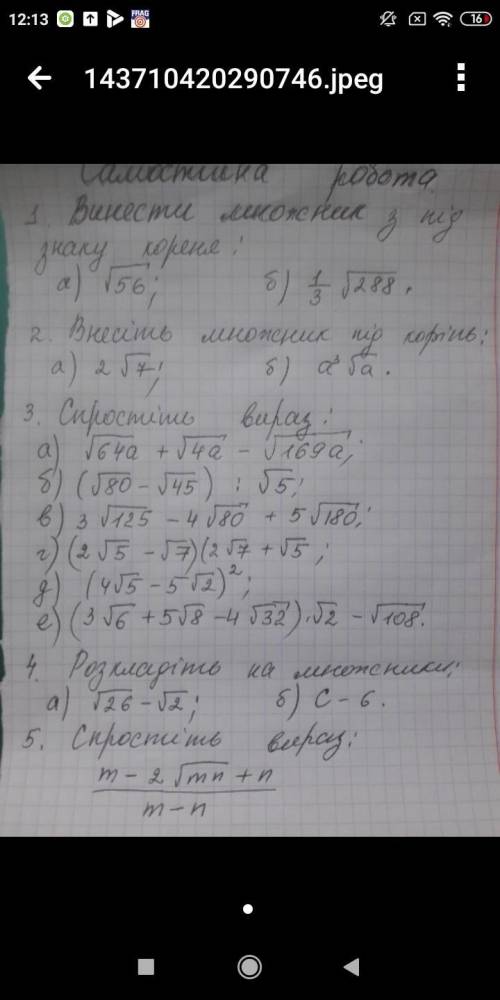 12:13
FRAG
16
143710420290746.jpeg
Самостійна робота
1. Винести множник з під
знаку кореня:
а) √56; б) 1/3 √288.
2. Внесіть множник під корінь:
а) 2√7; б) √a.
3. Спростіть вираз:
а) √64a + √4a - √169a;
б) (√80 - √45) : √5;
в) 3√125 - 4√80 + 5√180;
г) (2√5 - √7)(2√7 + √5;
д) (4√5 - 5√2)²;
е) (3√6 + 5√8 - 4√32)·√2 - √108.
4. Розкладіть на множники:
а) √26 - √2; б) c - 6.
5. Спростіть вираз:
m - 2√mn + n
m - n